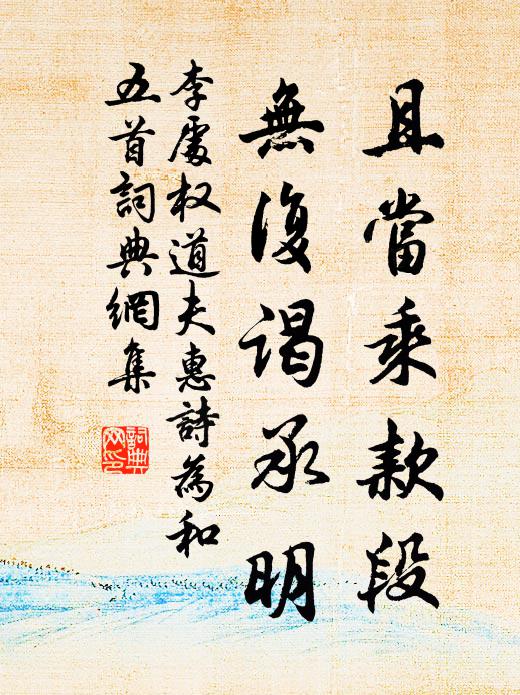 且當乘款段
無復謁承明
李處权道夫惠詩為和
五首詞典網集
詞典
网印